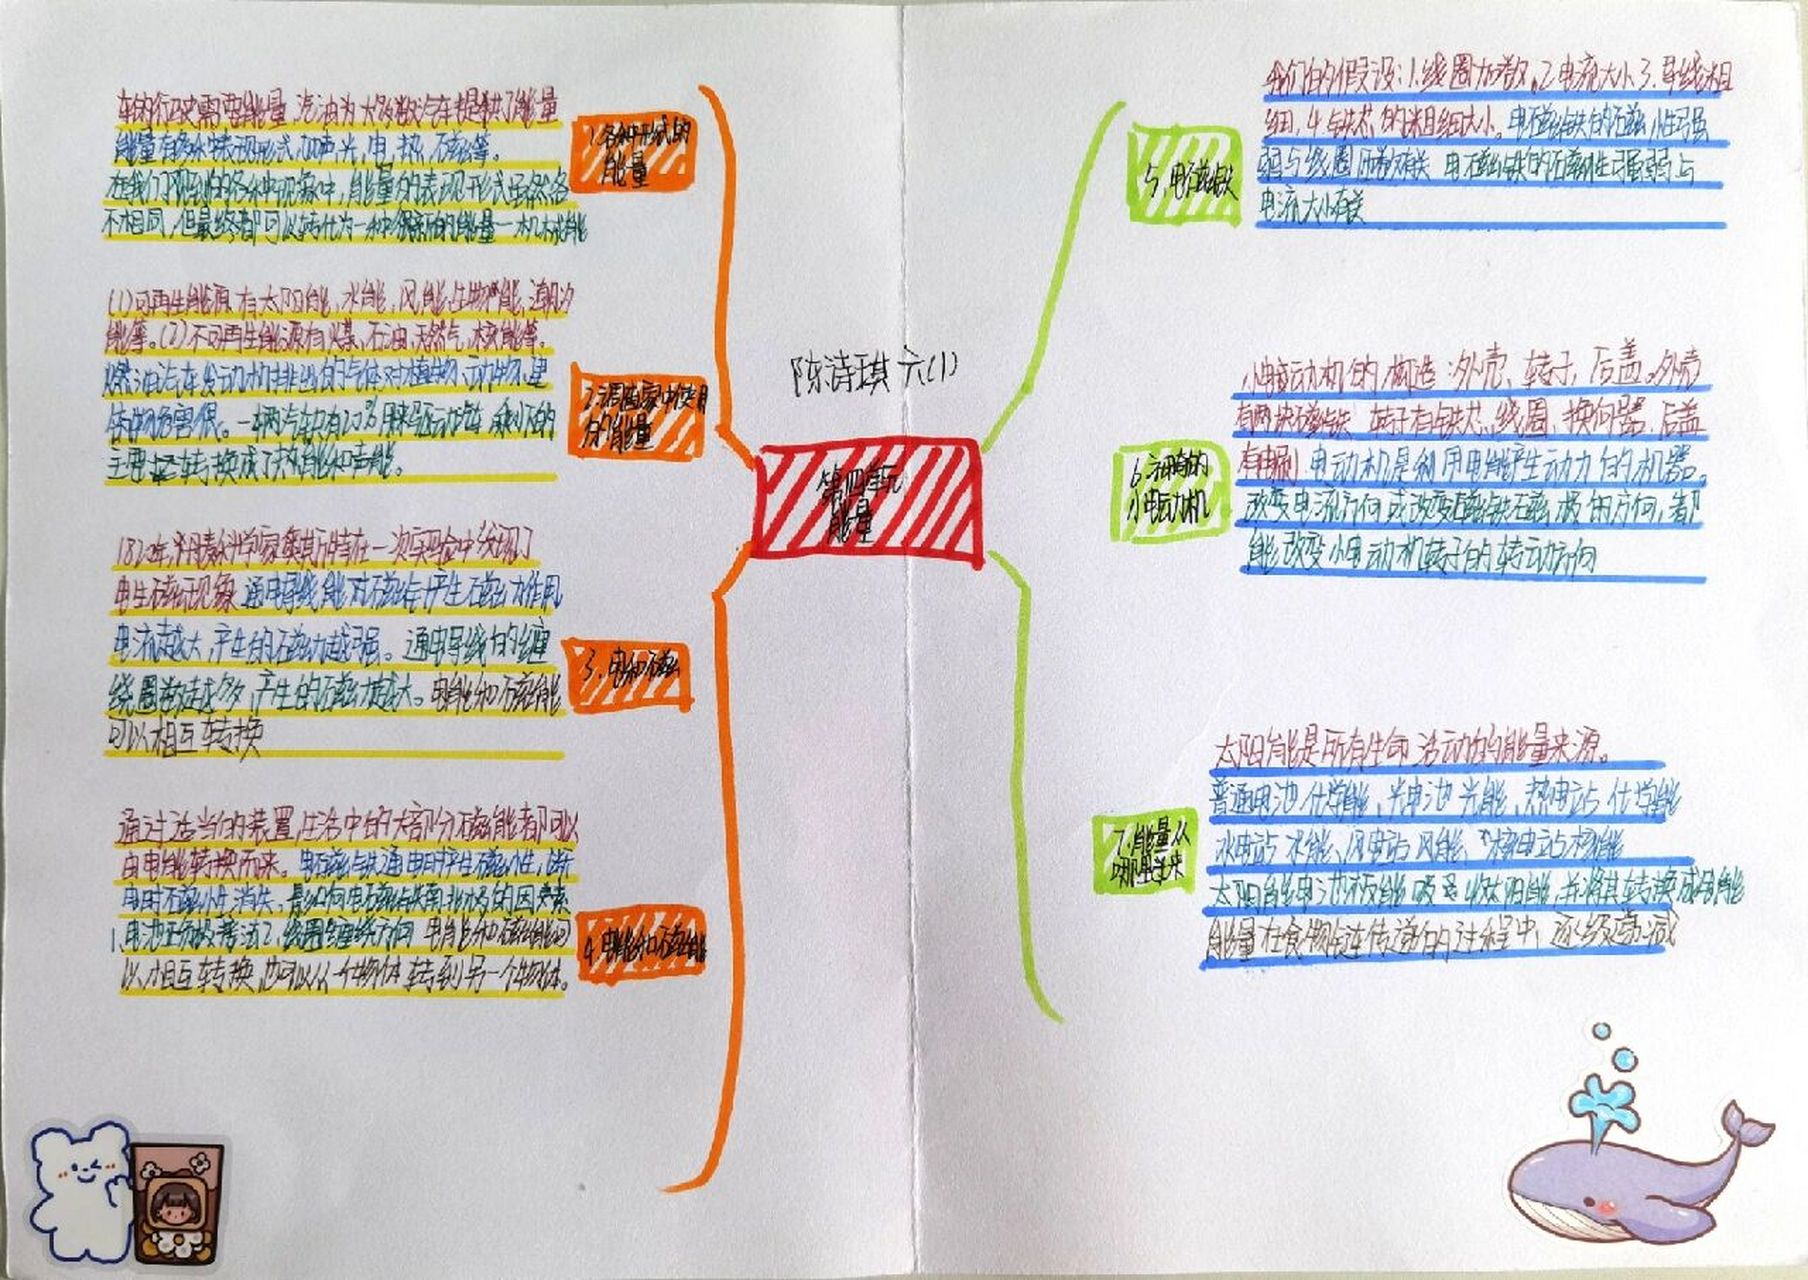 陈诗琪 六(1)
第四单元
能量
1.各种形式的
能量
车的行驶需要能量,汽油为大多数汽车提供了能量
能量有多种表现形式,如声,光,电,热,磁等。
在我们见到的各种现象中,能量的表现形式虽然各
不相同,但最终都可以转化为一种新的能量—机械能
2.调查家中使用
的能量
(1)可再生能源有太阳能,水能,风能,生物质能,潮汐
能等。(2)不可再生能源有煤、石油,天然气,核能等。
燃油汽车发动机排出的气体对植物、动物、建
筑物危害很。一辆汽车只有20%用来驱动汽车,剩下的
主要是转换成了热能和声能。
3.电和磁
1820年,丹麦科学家奥斯特在一次实验中发现了
电生磁现象 通电导线能对磁针产生磁力作用
电流越大,产生的磁力越强。通电导线的缠
绕圈数越多 产生的磁力越大。电能和磁能
可以相互转换
4.电能和磁能
通过适当的装置,生活中的大部分磁能都可以
由电能转换而来。电磁铁通电时产生磁性,断
电时磁性消失。影响电磁铁南北极的因素
1、电池正负极接法2、线圈缠绕方向 电能和磁能可
以相互转换,也可以从一个物体转到另一个物体。
5.电磁铁
我们的假设:1.线圈加数,2电流大小3.导线粗
细,4.铁芯的粗细大小。电磁铁的磁性强
弱与线圈匝数有关 电磁铁的磁性强弱与
电流大小有关
6.神奇的
小电动机
小电动机的构造:外壳、转子,后盖。外壳
有两块磁铁 转子有铁芯、线圈、换向器,后盖
有电刷。电动机是利用电能产生动力的机器。
改变电流方向或改变磁铁磁极的方向,都
能改变小电动机转子的转动方向
7.能量从
哪里来
太阳能是所有生命活动的能量来源。
普通电池 化学能、光电池 光能、热电站 化学能
水电站 水能、风电站 风能、核电站 核能
太阳能电池板能吸收太阳能,并将其转换成电能
能量在食物链传递的过程中,逐级递减